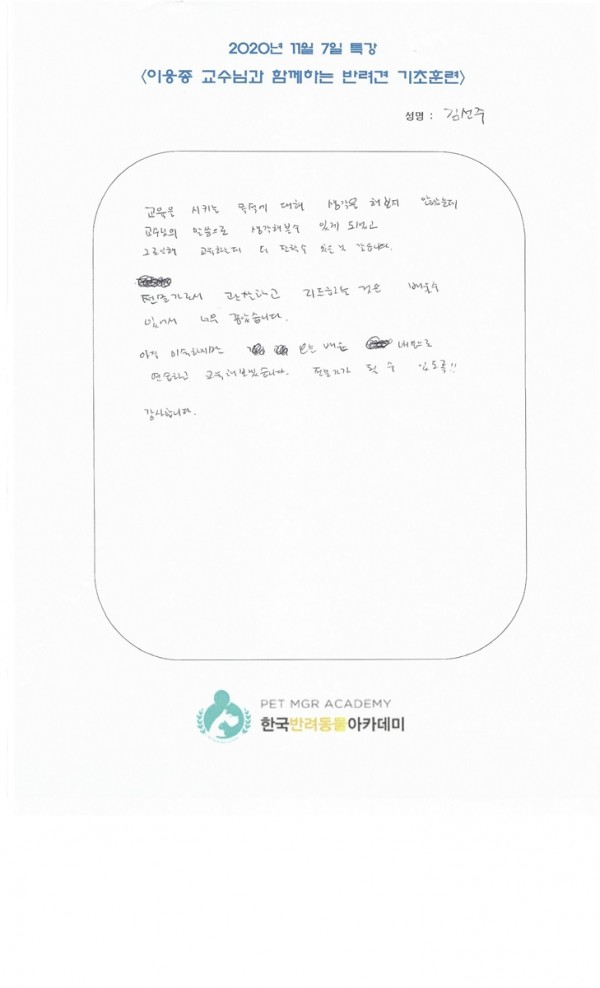 2020년 11월 7일 특강
<이웅종 교수님과 함께하는 반려견 기초훈련>
성명 : 김선주
교육을 시키는 목적에 대해 생각을 해본적 없었는데
교수님의 말씀으로 생각해볼수 있게 되었고
그로인해 교육하는데 더 잘할수 있을것 같습니다.
전문가로서 관찰하고 리드하는 것은 배울수
있어서 너무 좋았습니다.
아직 미숙하지만 오늘 배운 내용으로
연습하고 교육해보겠습니다. 전문가가 될 수 있도록!!
감사합니다.
PET MGR ACADEMY
한국반려동물아카데미